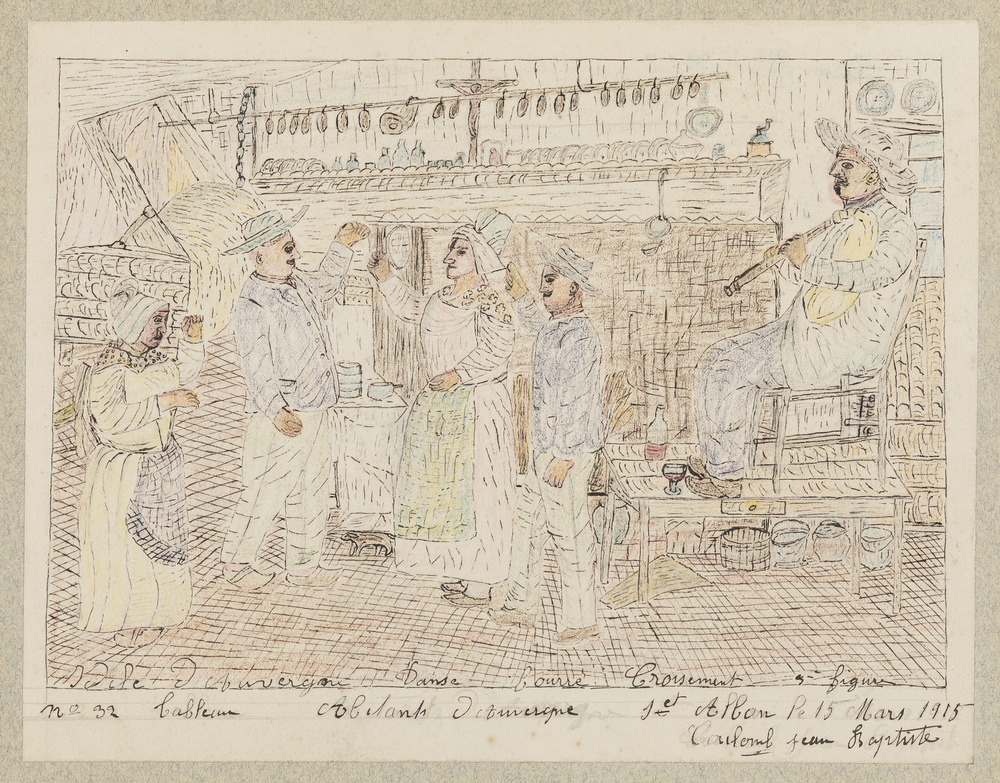 D'auvergne Danse Bourré Croisement 3me figure
no 32 Tableau D'Auvergne St Alban le 15 Mars 1915
Coulomb jean Baptiste